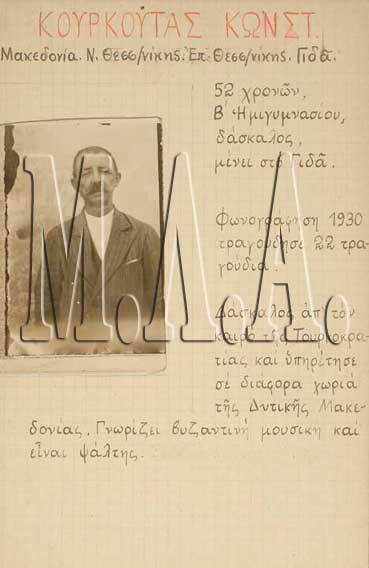 ΚΟΥΡΚΟΥΤΑΣ ΚΩΝΣΤ.
Μακεδονία. Ν. Θεσσ/νίκης. Ἐπ. Θεσσ/νίκης. Γιδᾶ.
52 χρονῶν,
Β΄ Ἡμιγυμνασίου,
δάσκαλος,
μένει στὸ Γιδᾶ.
Φωνογράφηση 1930
τραγούδησε 22 τρα-
γούδια.
Δάσκαλος ἀπ' τὸν
καιρὸ τῆς Τουρκοκρα-
τίας καὶ ὑπηρέτησε
σὲ διάφορα χωριὰ
τῆς Δυτικῆς Μακε-
δονίας. Γνωρίζει βυζαντινὴ μουσικὴ καὶ
εἶναι ψάλτης.
Μ.Λ.Α.